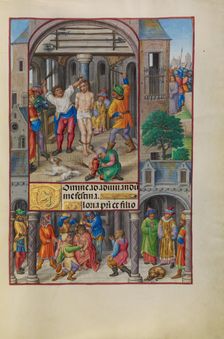 Domine ad adiuuandū
me festina.
Gloria pri et filio